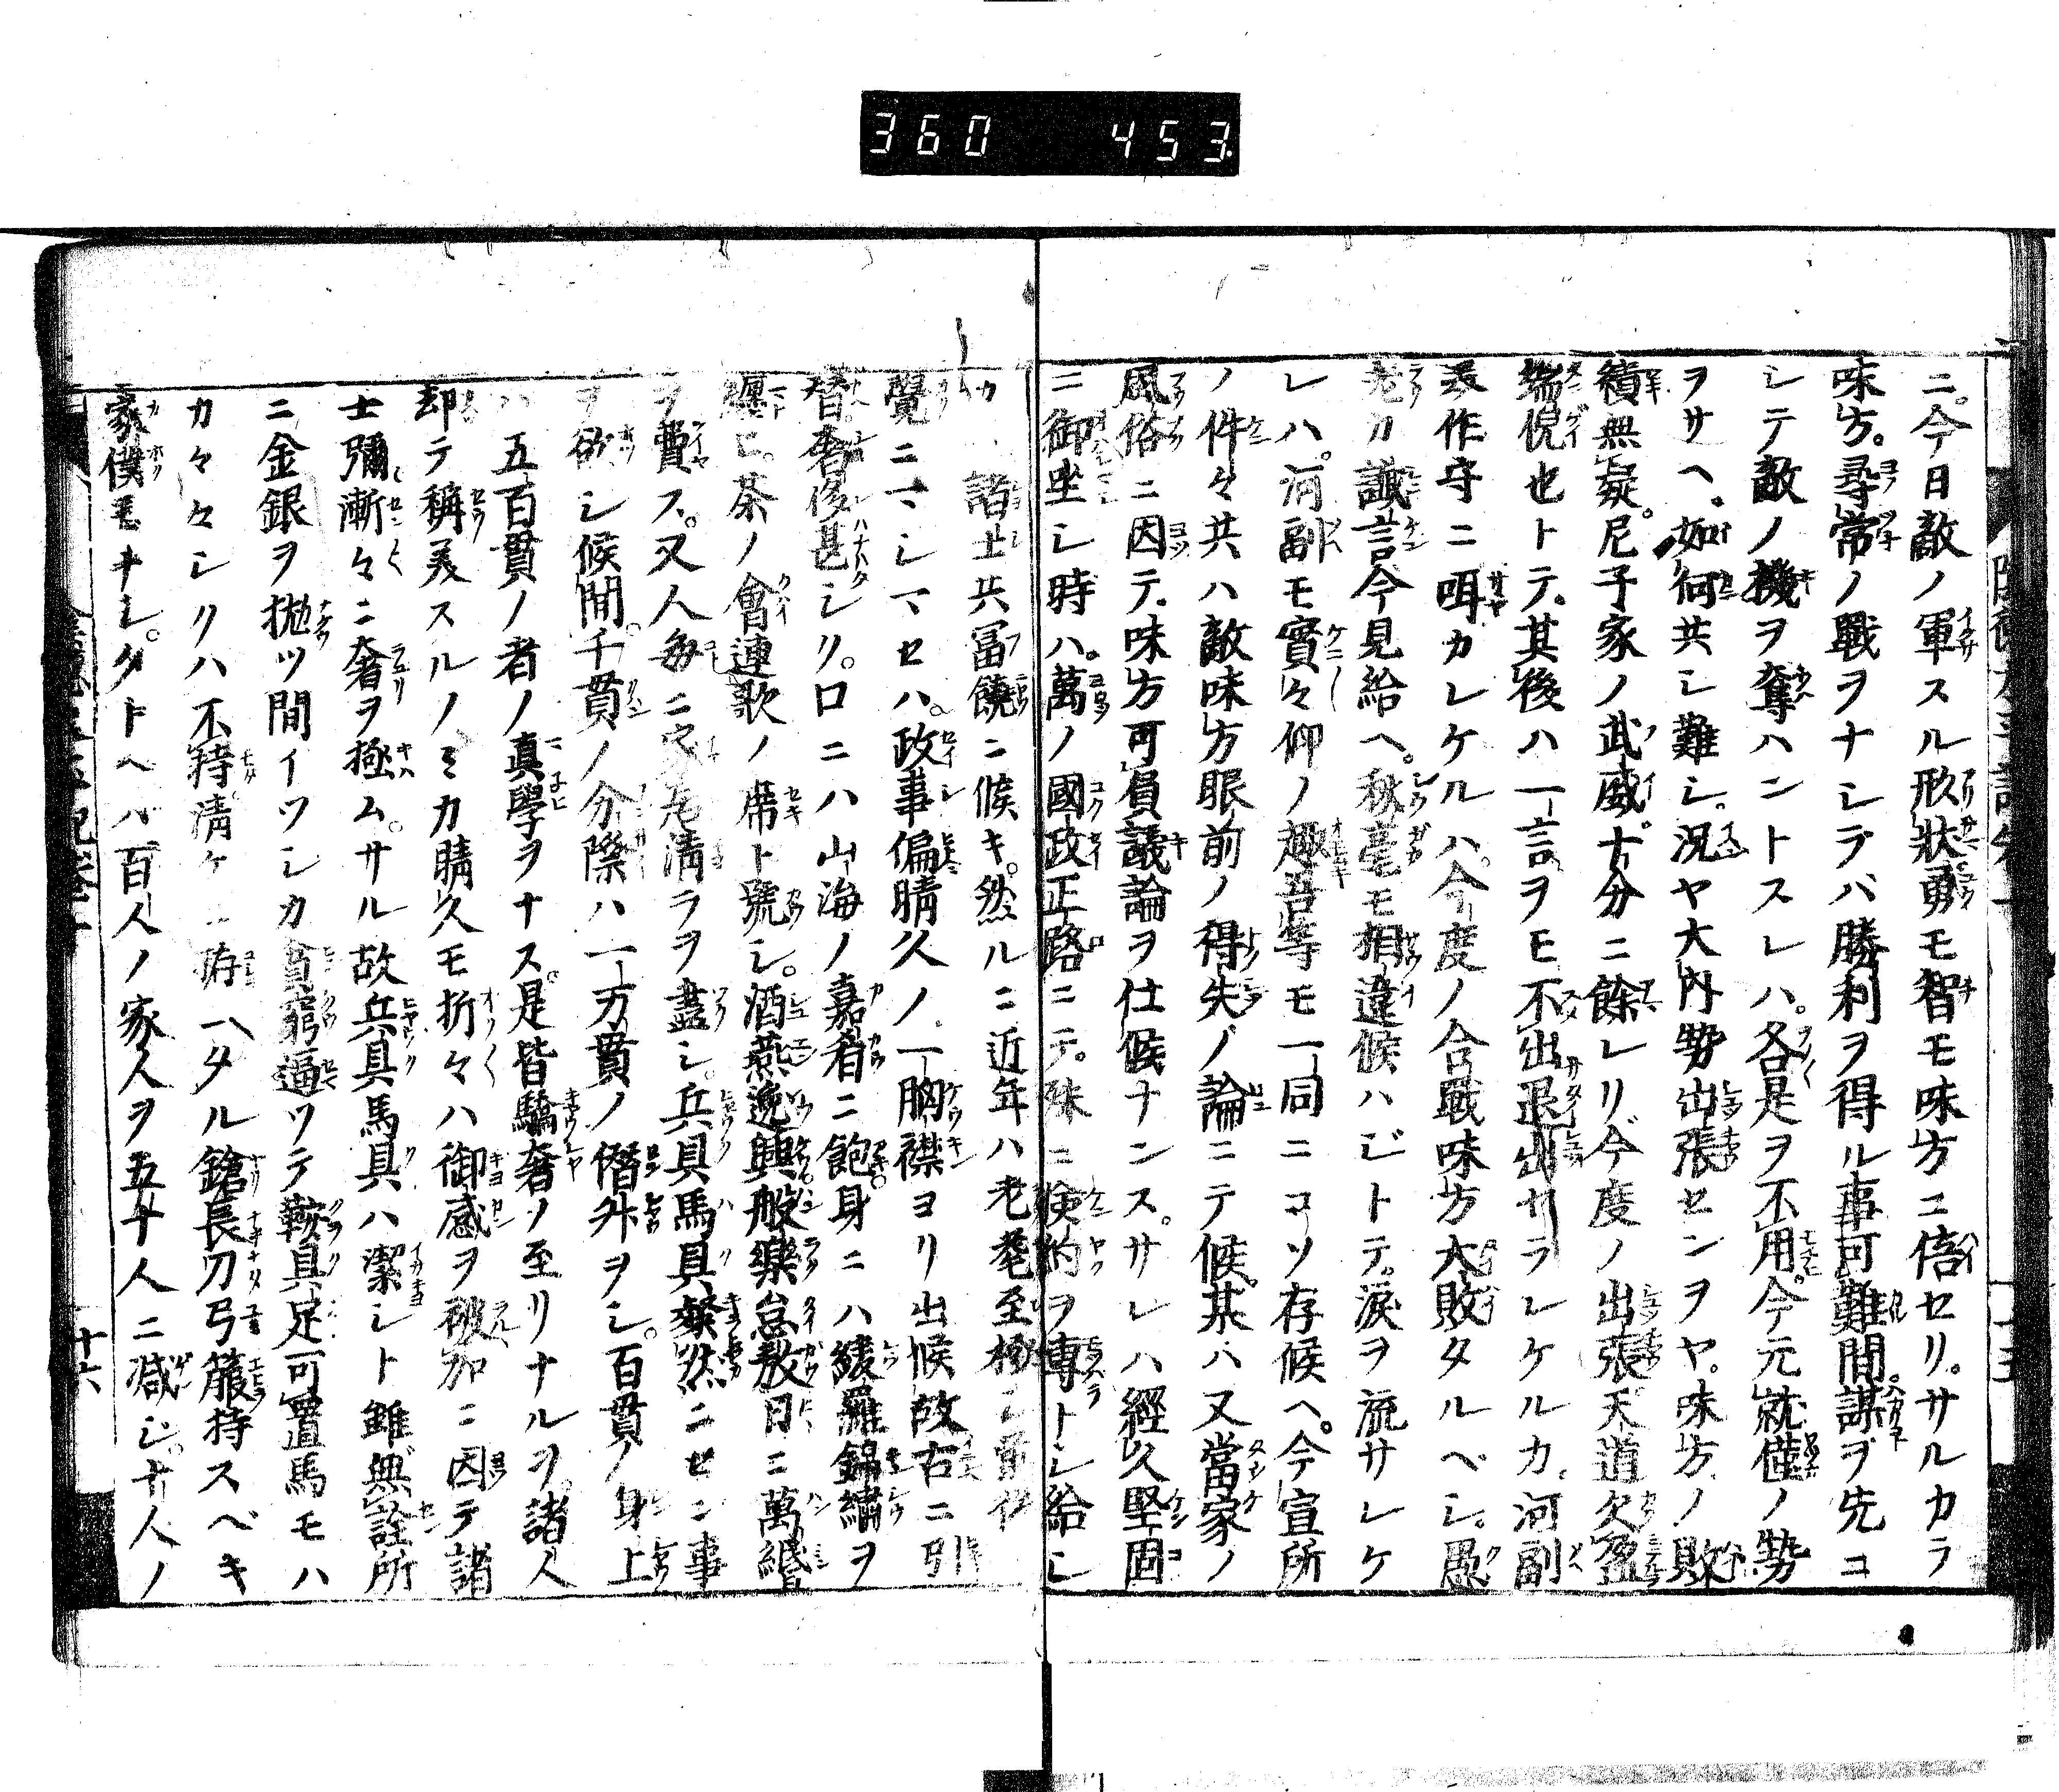 360 453
ニ。今日敵ノ軍スル形狀勇モ智モ味方ニ倍セリ。サルカラ
味方。尋常ノ戰ヲナシテバ勝利ヲ得ル事可難間。謀ヲ先ニ
シテ敵ノ機ヲ奪ハントスレハ。各是ヲ不用。今元就僅ノ勢
ヲサヘ。如何共シ難シ。況ヤ大内勢出張センヲヤ。味方ノ敗
績無疑。尼子家ノ武威十分ニ餘レリ。今度ノ出張天道欠盈
端倪也トテ。其後ハ一言ヲモ不出退出セラレケルカ。河副
美作守ニ咡カレケルハ。今度ノ合戰味方大敗タルベシ。愚
老カ讖言今見給ヘ。秋毫モ相違候ハジトテ。淚ヲ流サレケ
レハ。河副モ實々仰ノ趣吾等モ一同ニコソ存候ヘ。今宣所
ノ件々共ハ敵味方眼前ノ得失ノ論ニテ候。某ハ又當家ノ
風俗ニ因テ。味方可負議論ヲ仕候ナンス。サレハ經久堅固
ニ御坐シ時ハ。萬ノ國政正路ニテ。殊ニ儉約ヲ專トシ給シ
カ 諸士共冨饒ニ候キ。然ルニ近年ハ老耄至極シ
覺ニマシマセハ。政事偏晴久ノ一胸襟ヨリ出候故右ニ引
替。奢侈甚シリ。口ニハ山海ノ嘉肴ニ飽。身ニハ綾羅錦繡ヲ
纒ヒ。茶ノ會連歌ノ席ト號シ。酒燕逸興般樂怠敖日ニ萬緡
ヲ費ス。又人每ニ 淸ラヲ盡シ。兵具馬具粲然ニセン事
ヲ欲シ候間。千貫ノ分際ハ一万貫ノ僭外ヲシ。百貫ノ身上
ハ五百貫ノ者ノ真學ヲナス。是皆驕奢ノ至リナルヲ。諸人
却テ稱美スルノミカ晴久モ折々ハ御感ヲ被加ニ因テ諸
士彌漸々ニ奢ヲ極ム。サル故兵具馬具ハ潔シト雖無詮所
ニ金銀ヲ拋ツ間イツシカ貧窮逼ツテ鞍具足可置馬モハ
カ々々シリハ不持淸ケニ拵ヘタル鎗長刀弓箙持スベキ
家僕モナシ。タトヘバ百人ノ家人ヲ五十人ニ减ジ。廿人ノ
十六